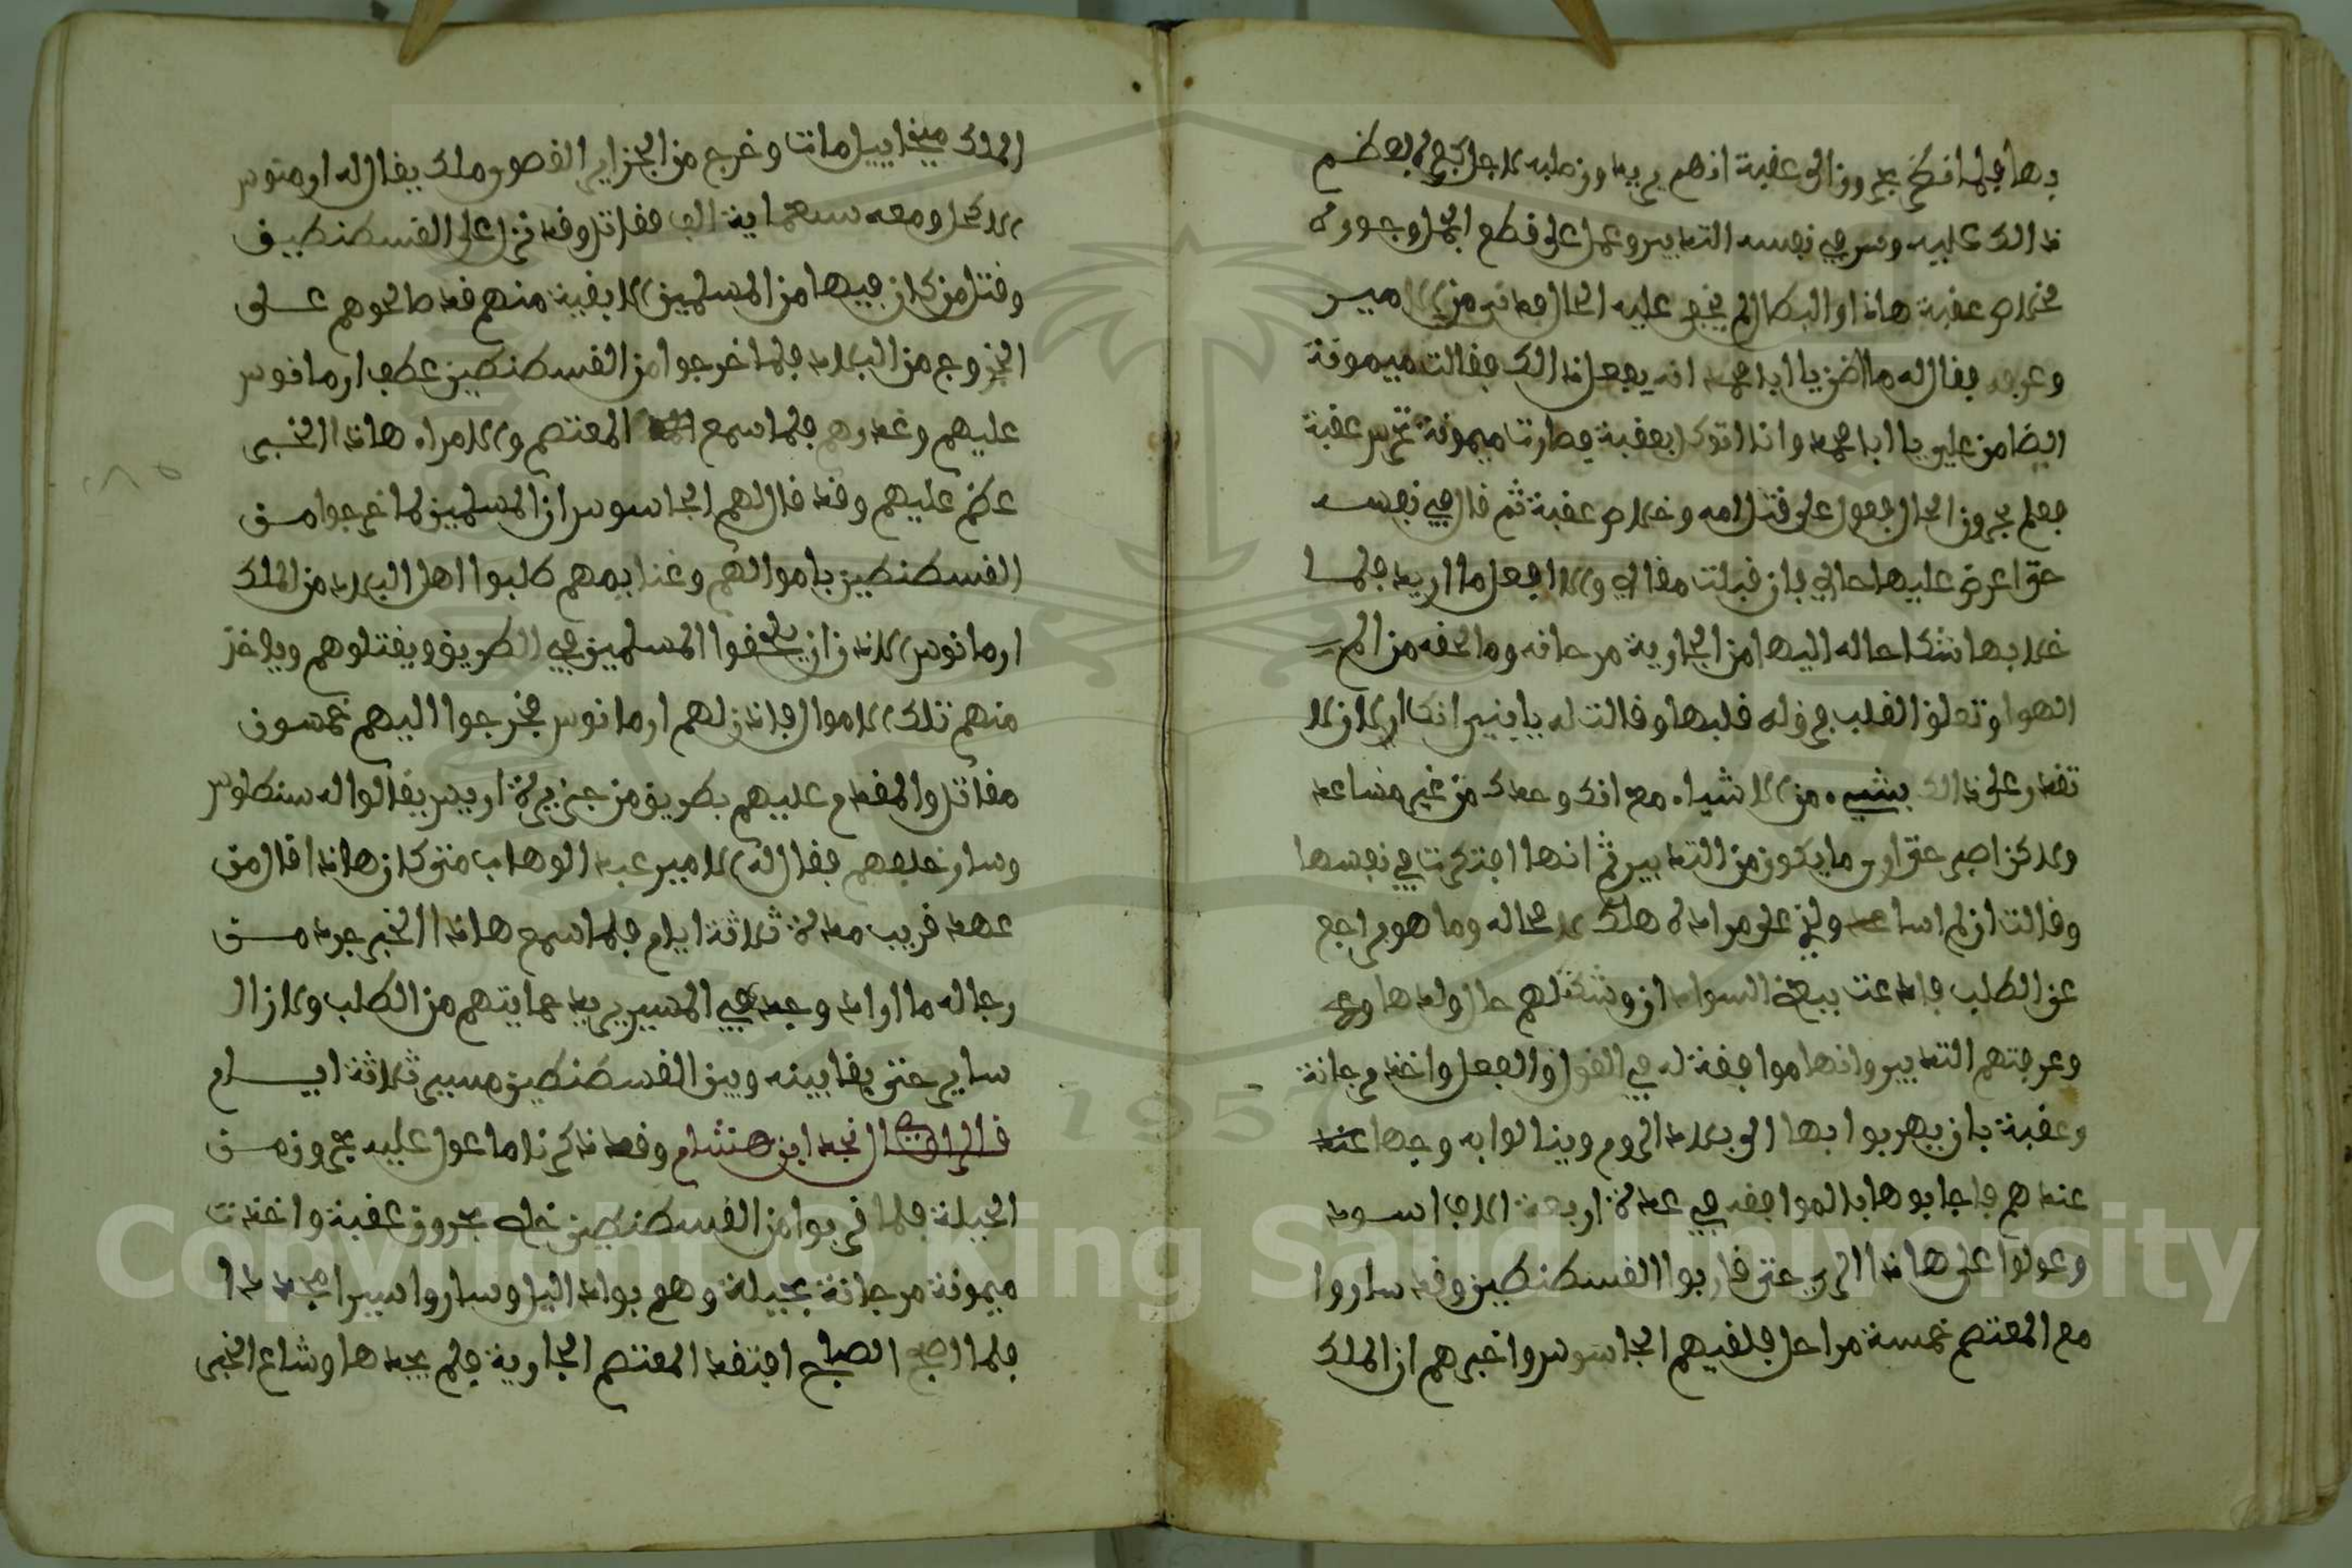 بها فلما افتح بحرون الى عقبة انهم يريدون طلبه لاجل بعظم
ذالك عليه وسر في نفسه التدبير وعمل على قطع الجمل وجوده
خلاص عقبة هاذا والبطال لم يخف عليه الحال فدنى من الامير
وعرفه فقال له ما اظن يا ابا محمد انه يفعل ذالك فقالت ميمونة
الضامن علي يا ابا محمد وانا اتوكل بعقبة فصارت ميمونة تحرس عقبة
فعلم بحرون الحال فعول على قتل امه وخلاص عقبة ثم قال في نفسه
حتى اعرض عليها حالي فان قبلت مقالي والا افعل ما اريد فلما
خلا بها شكا حاله اليها من الجارية مرجانة وما لحقه من الم
الهوا وتعلق القلب فرق له قلبها وقالت له يا بني انك الان لا
تقدر على ذالك بشيء من الاشياء مع انك وحدك من غير مساعد
ولاكن اصبر حتى ارى ما يكون من التدبير ثم انها افتكرت في نفسها
وقالت ان لم اساعد ولدي على مراده هلك لا محاله وما هو براجع
عن الطلب فدعت ببعض السوادان وشكت لهم حال ولدها
وعرفتهم التدبير وانها موافقة له في القول والفعل واخذ مرجانة
وعقبة بان يهربوا بها الى بلاد الروم وينالوا به وجها عند
عندهم فاجابوها بالموافقه في عدة اربعة الاف اسود
وعولوا على هاذا الراي حتى قاربوا القسطنطين وقد ساروا
مع المعتصم خمسة مراحل فلقيهم الجاسوس واخبرهم ان الملك
الملك ميخاييل مات وخرج من الجزاير القصور ملك يقال له ارمنوس
الاكحل ومعه سبعماية الف مقاتل وقد نزل على القسطنطين
وقتل من كان فيها من المسلمين الا بقية منهم قد صالحوهم على
الخروج من البلاد فلما خرجوا من القسطنطين عطف ارمانوس
عليهم وغدرهم فلما سمع المعتصم والامراء هاذا الخبر
عظم عليهم وقد قال لهم الجاسوس ان المسلمين لما خرجوا من
القسطنطين باموالهم وغنايمهم طلبوا اهل البلاد من الملك
ارمانوس الاذن ان يلحقوا المسلمين في الطريق ويقتلوهم وياخذ
منهم تلك الاموال فاذن لهم ارمانوس فخرجوا اليهم خمسون
مقاتل والمقدم عليهم بطريق من جزيرة اريس يقالوا له سنطلوس
وسار خلفهم فقال له الامير عبد الوهاب متى كان هاذا قال من
عهد قريب مدة ثلاثة ايام فلما سمع هاذا الخبر جرد من
رجاله ما اراد وجد في المسير يريد حمايتهم من الطلب ولازال
ساير حتى بقا بينه وبين القسطنطين مسير ثلاثة ايام
قال الراوي نجد ابن هشام وقد ذكرنا ما عول عليه بحرون من
الحيلة فلما قربوا من القسطنطين خلص بحرون عقبة واخذت
ميمونة مرجانة بحيلة وهربوا بالليل وساروا سيرا مجدا
فلما اصبح الصباح افتقد المعتصم الجارية فلم يجدها وشاع الخبر